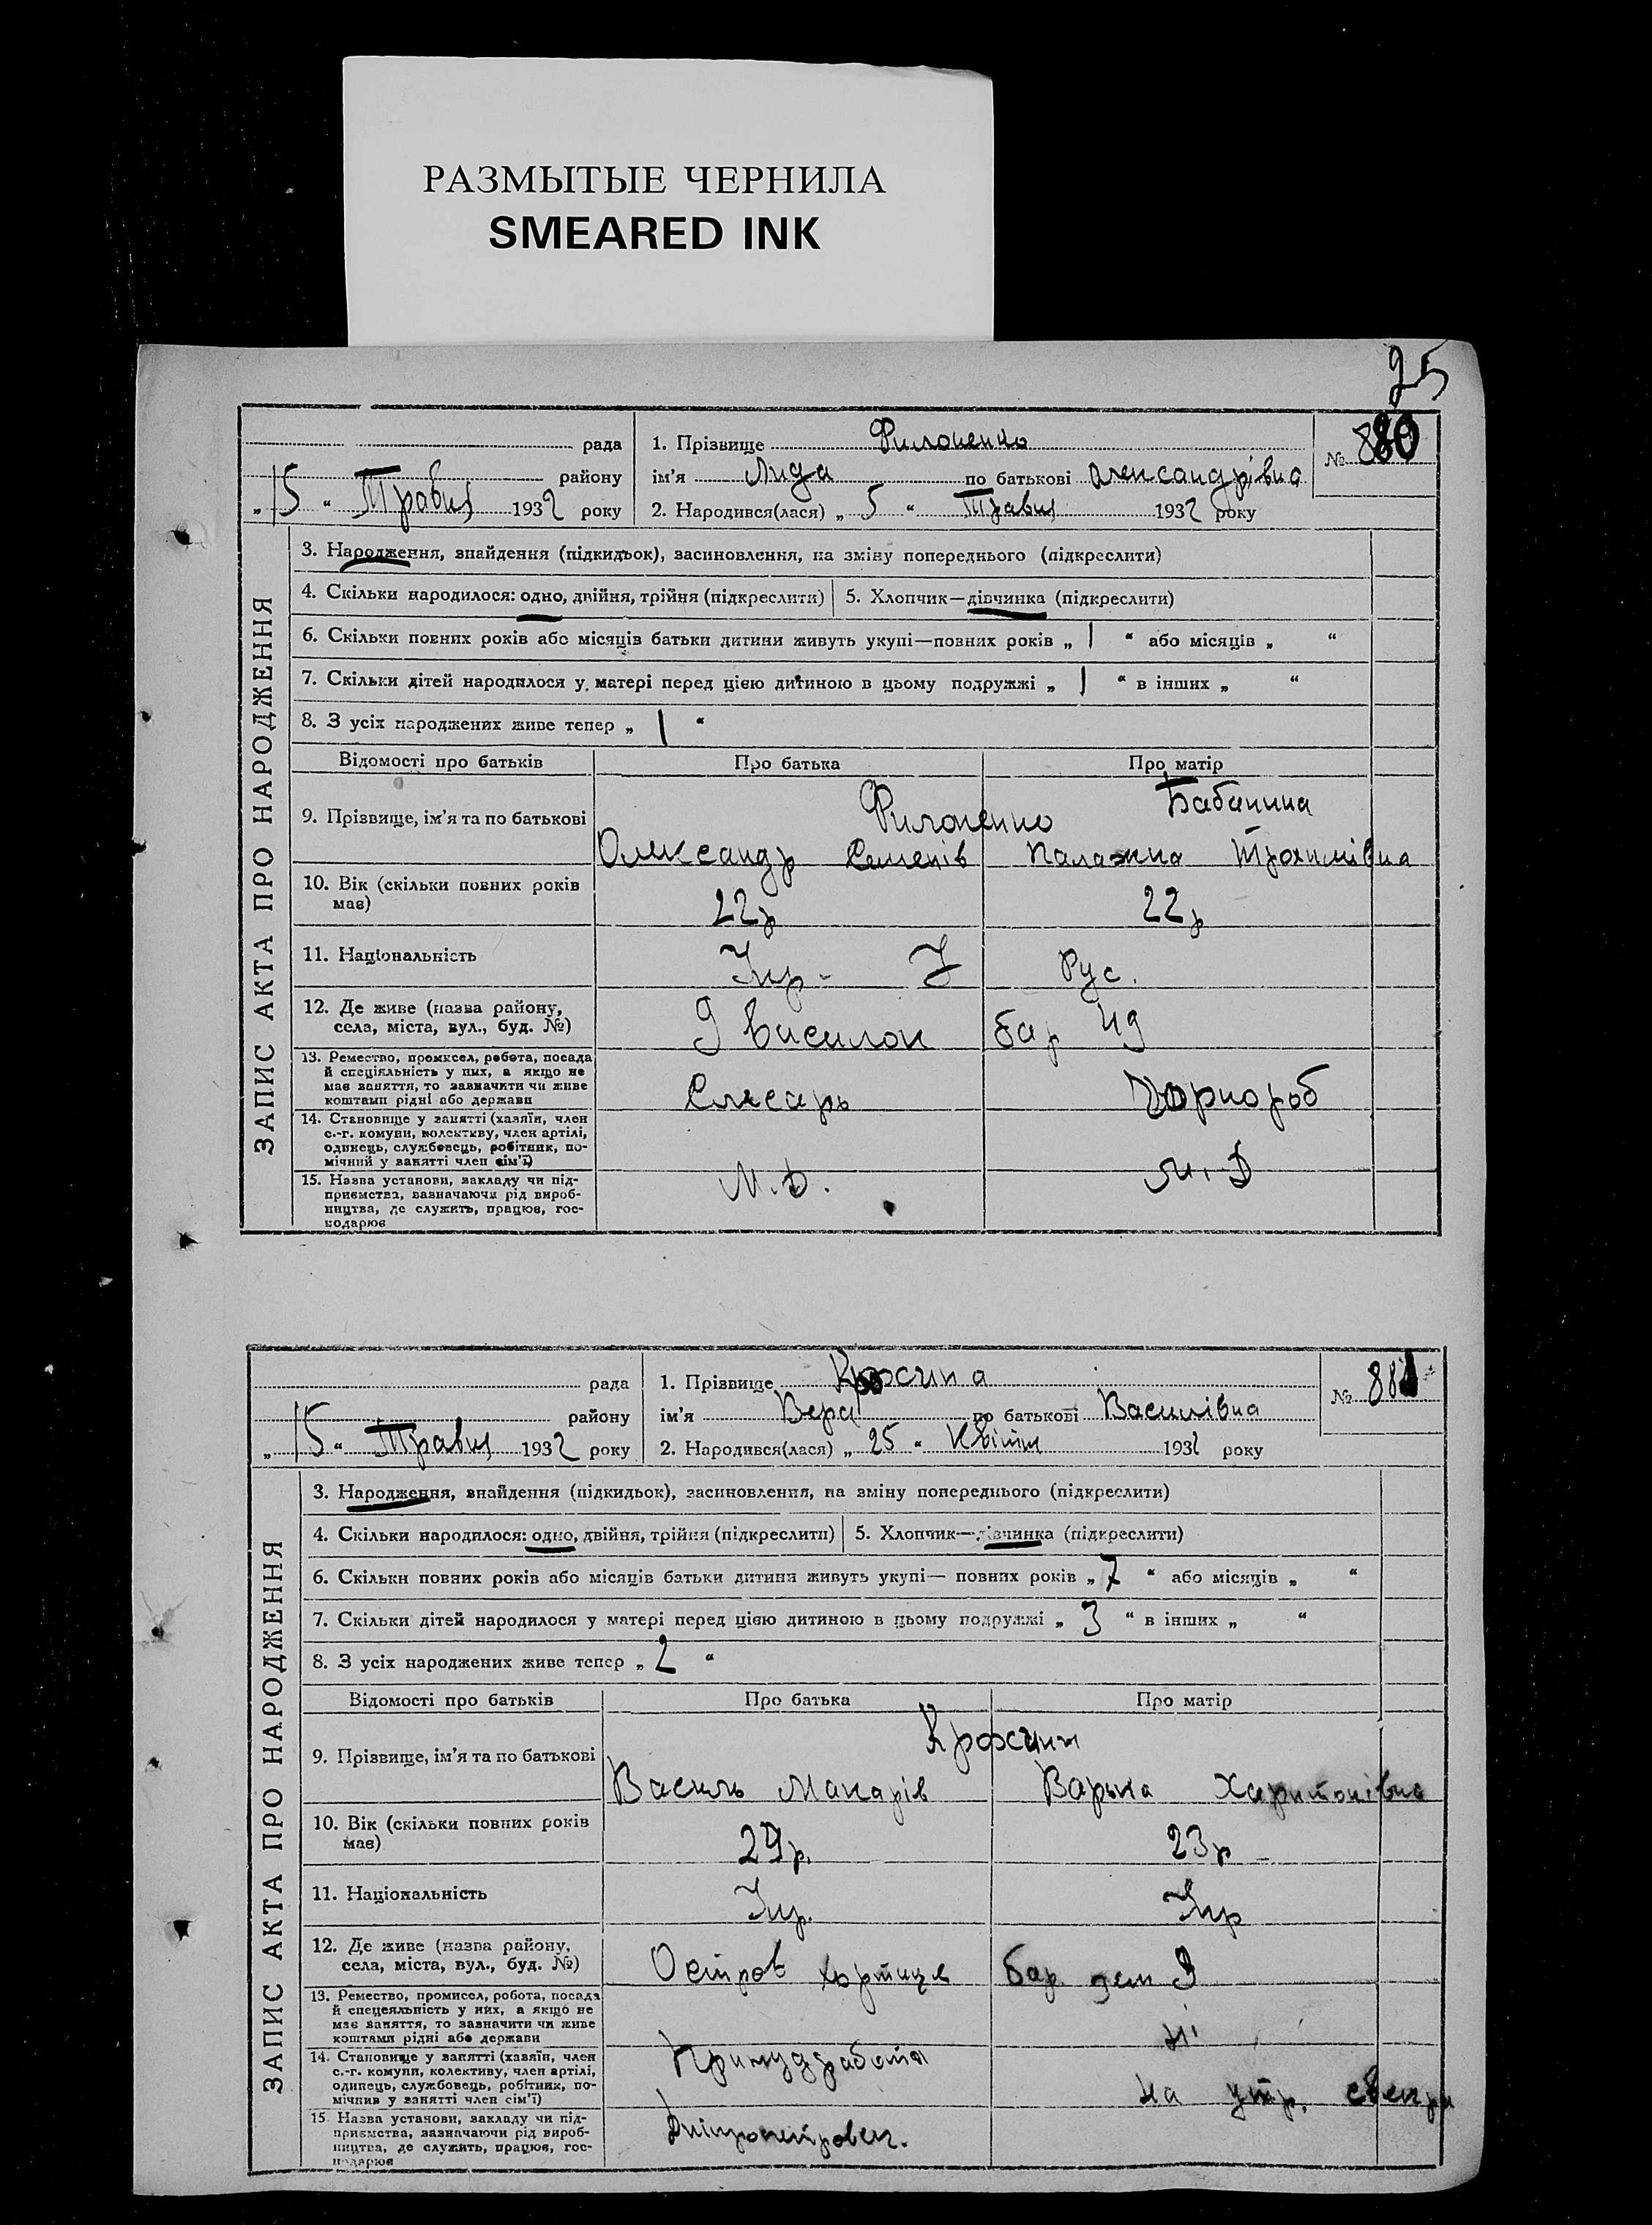 РАЗМЫТЫЕ ЧЕРНИЛА
SMEARED INK
25
рада
району
„ 15 “ Травня 1932 року
1. Прізвище Филоненко
ім’я Лида по батькові Александрівна
2. Народився(лася) „ 5 “ Травня 1932 року
№ 880
ЗАПИС АКТА ПРО НАРОДЖЕННЯ
3. Народження, знайдення (підкидьок), засиновлення, на зміну попереднього (підкреслити)
4. Скільки народилося: одно, двійня, трійня (підкреслити)
5. Хлопчик—дівчинка (підкреслити)
6. Скільки повних років або місяців батьки дитини живуть укупі—повних років „ 1 “ або місяців „ “
7. Скільки дітей народилося у матері перед цією дитиною в цьому подружжі „ 1 “ в інших „ “
8. З усіх народжених живе тепер „ 1 “
Відомості про батьків Про батька Про матір
9. Прізвище, ім’я та по батькові
Филоненко Бабанина
Олександр Семенів Палажка Трохимівна
10. Вік (скільки повних років має)
22р 22р
11. Національність
Укр - У Рус.
12. Де живе (назва району, села, міста, вул., буд. №)
9 Висилок бар 49
13. Ремество, промисел, робота, посада й спеціяльність у них, а якщо не має заняття, то зазначити чи живе коштами рідні або держави
Слесарь Чорнороб
14. Становище у занятті (хазяїн, член с.-г. комуни, колективу, член артілі, одинець, службовець, робітник, помічний у занятті член сім’ї)
15. Назва установи, закладу чи підприємства, зазначаючи рід виробництва, де служить, працює, господарює
М. Д. М. Д
рада
району
„ 15 “ Травня 1932 року
1. Прізвище
ім’я Вера по батькові Василівна
2. Народився(лася) „ 25 “ Квітня 1932 року
№ 881
ЗАПИС АКТА ПРО НАРОДЖЕННЯ
3. Народження, знайдення (підкидьок), засиновлення, на зміну попереднього (підкреслити)
4. Скільки народилося: одно, двійня, трійня (підкреслити)
5. Хлопчик—дівчинка (підкреслити)
6. Скільки повних років або місяців батьки дитини живуть укупі— повних років „ 7 “ або місяців „ “
7. Скільки дітей народилося у матері перед цією дитиною в цьому подружжі „ 3 “ в інших „ “
8. З усіх народжених живе тепер „ 2 “
Відомості про батьків Про батька Про матір
9. Прізвище, ім’я та по батькові
Василь Макарів Варька Харитонівна
10. Вік (скільки повних років має)
29р. 23р
11. Національність
Укр. Укр
12. Де живе (назва району, села, міста, вул., буд. №)
Остров Хортиця бар.
13. Ремество, промисел, робота, посада й спецеяльність у них, а якщо не має заняття, то зазначити чи живе коштами рідні або держави
Ні
14. Становище у занятті (хазяїн, член с.-г. комуни, колективу, член артілі, одинець, службовець, робітник, помічнив у занятті член сім’ї)
Принудработа на утр.
15 Назва установи, закладу чи підприємства, зазначаючи рід виробництва, де служить, працює, господарює
Дніпропетровск.